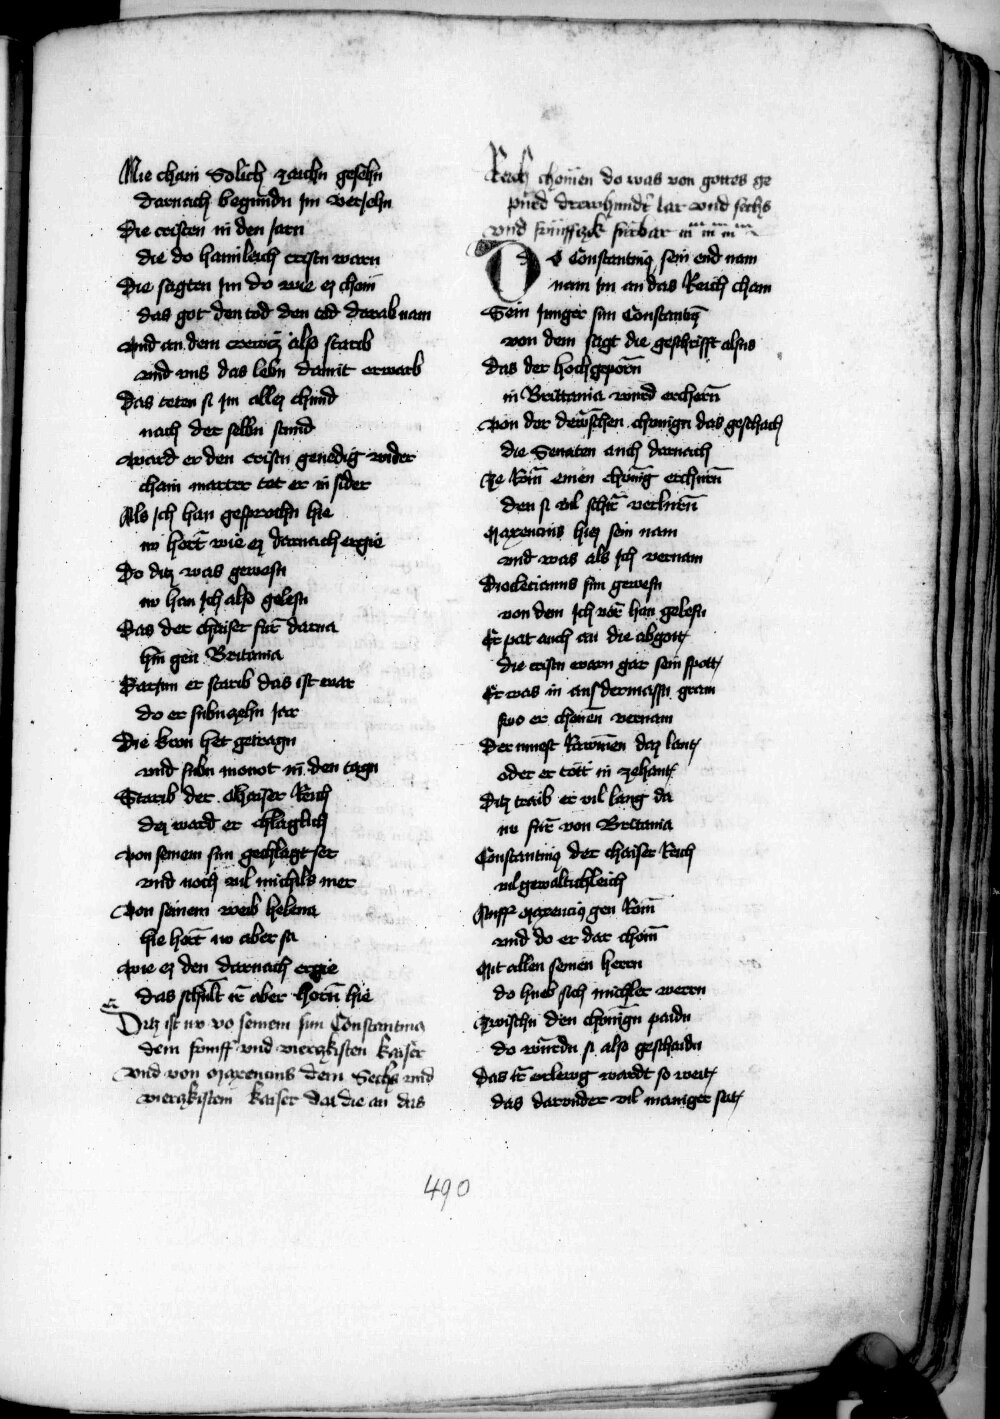 Nie chain Solich zaichn gesehn
darnach begundn Im veriehn
Die cristen in den Jarn
die do haimleich cristn warn
Die sagten im do wie ez chom
das got den tod den tod darab nam
vnd an dem crewcz also starb
vnd vns das lebn damit erwarb
Das teten si im allez chund
nach der selbn stund
ward er den cristn genedig wider
chain marter tet er in sider
Als Ich han gesprochn hie
nv hort wie ez darnach ergie
Do ditz was gewesn
nv han Ich also gelesn
Das der chaiser fur darna
hin gen Britania
Darinn er starb das ist war
do er sibnzehn Jar
Die kron het getragn
vnd sibn monot in den tagn
Starib der Chaiser Reich
dez ward er chlaglich
von seinem sun gechlagt ser
vnd noch vil michels mer
von seinem weib helena
hie hort nv aber sa
wie ez den darnach ergie
das schult ir aber horn hie
Ditz ist nv vo seinem sun Constantino
dem funff vnd vierczkisten kaiser
vnd von Maxencius dem Sechs vnd
vierczkistem kaiser Dat die an das
Reich chomen do was von gottes ge
purd drewhundt Iar vnd sechs
vnd funfftzk furbar
Do Constantinus sein end nam
nam im an das Reich cham
Sein Junger sun Constantinus
von dem sagt die geschrifft alsus
Das der hochgeporn
in Brittania wurd erchorn
von der dewschen chonign das geschach
die Senaten auch darnach
Ze Rom einen chonig erchurn
den si vil schir verlurn
Maxencius hiez sein nam
vnd was als Ich vernam
Diocletianus sun gewesn
von dem Ich vor han gelesn
Er pat auch an die abgott
die cristn warn gar sein spott
Er was in aus dermassn gram
swo er chainen vernam
Der muest Rawmen daz lant
oder er tott in zehant
Ditz traib er vil lang da
nv fur von Britania
Constantinus der chaiser Reich
vil gewaltichleich
Auff Maxencius gen Rom
vnd do er dar chom
Mit allen seinen herrn
do hueb sich michler werrn
Zwischn den chonign paidn
do wurdn si also geschaidn
Das ir vrlewg wardt so weit
das darvnder vil maniger seit
490